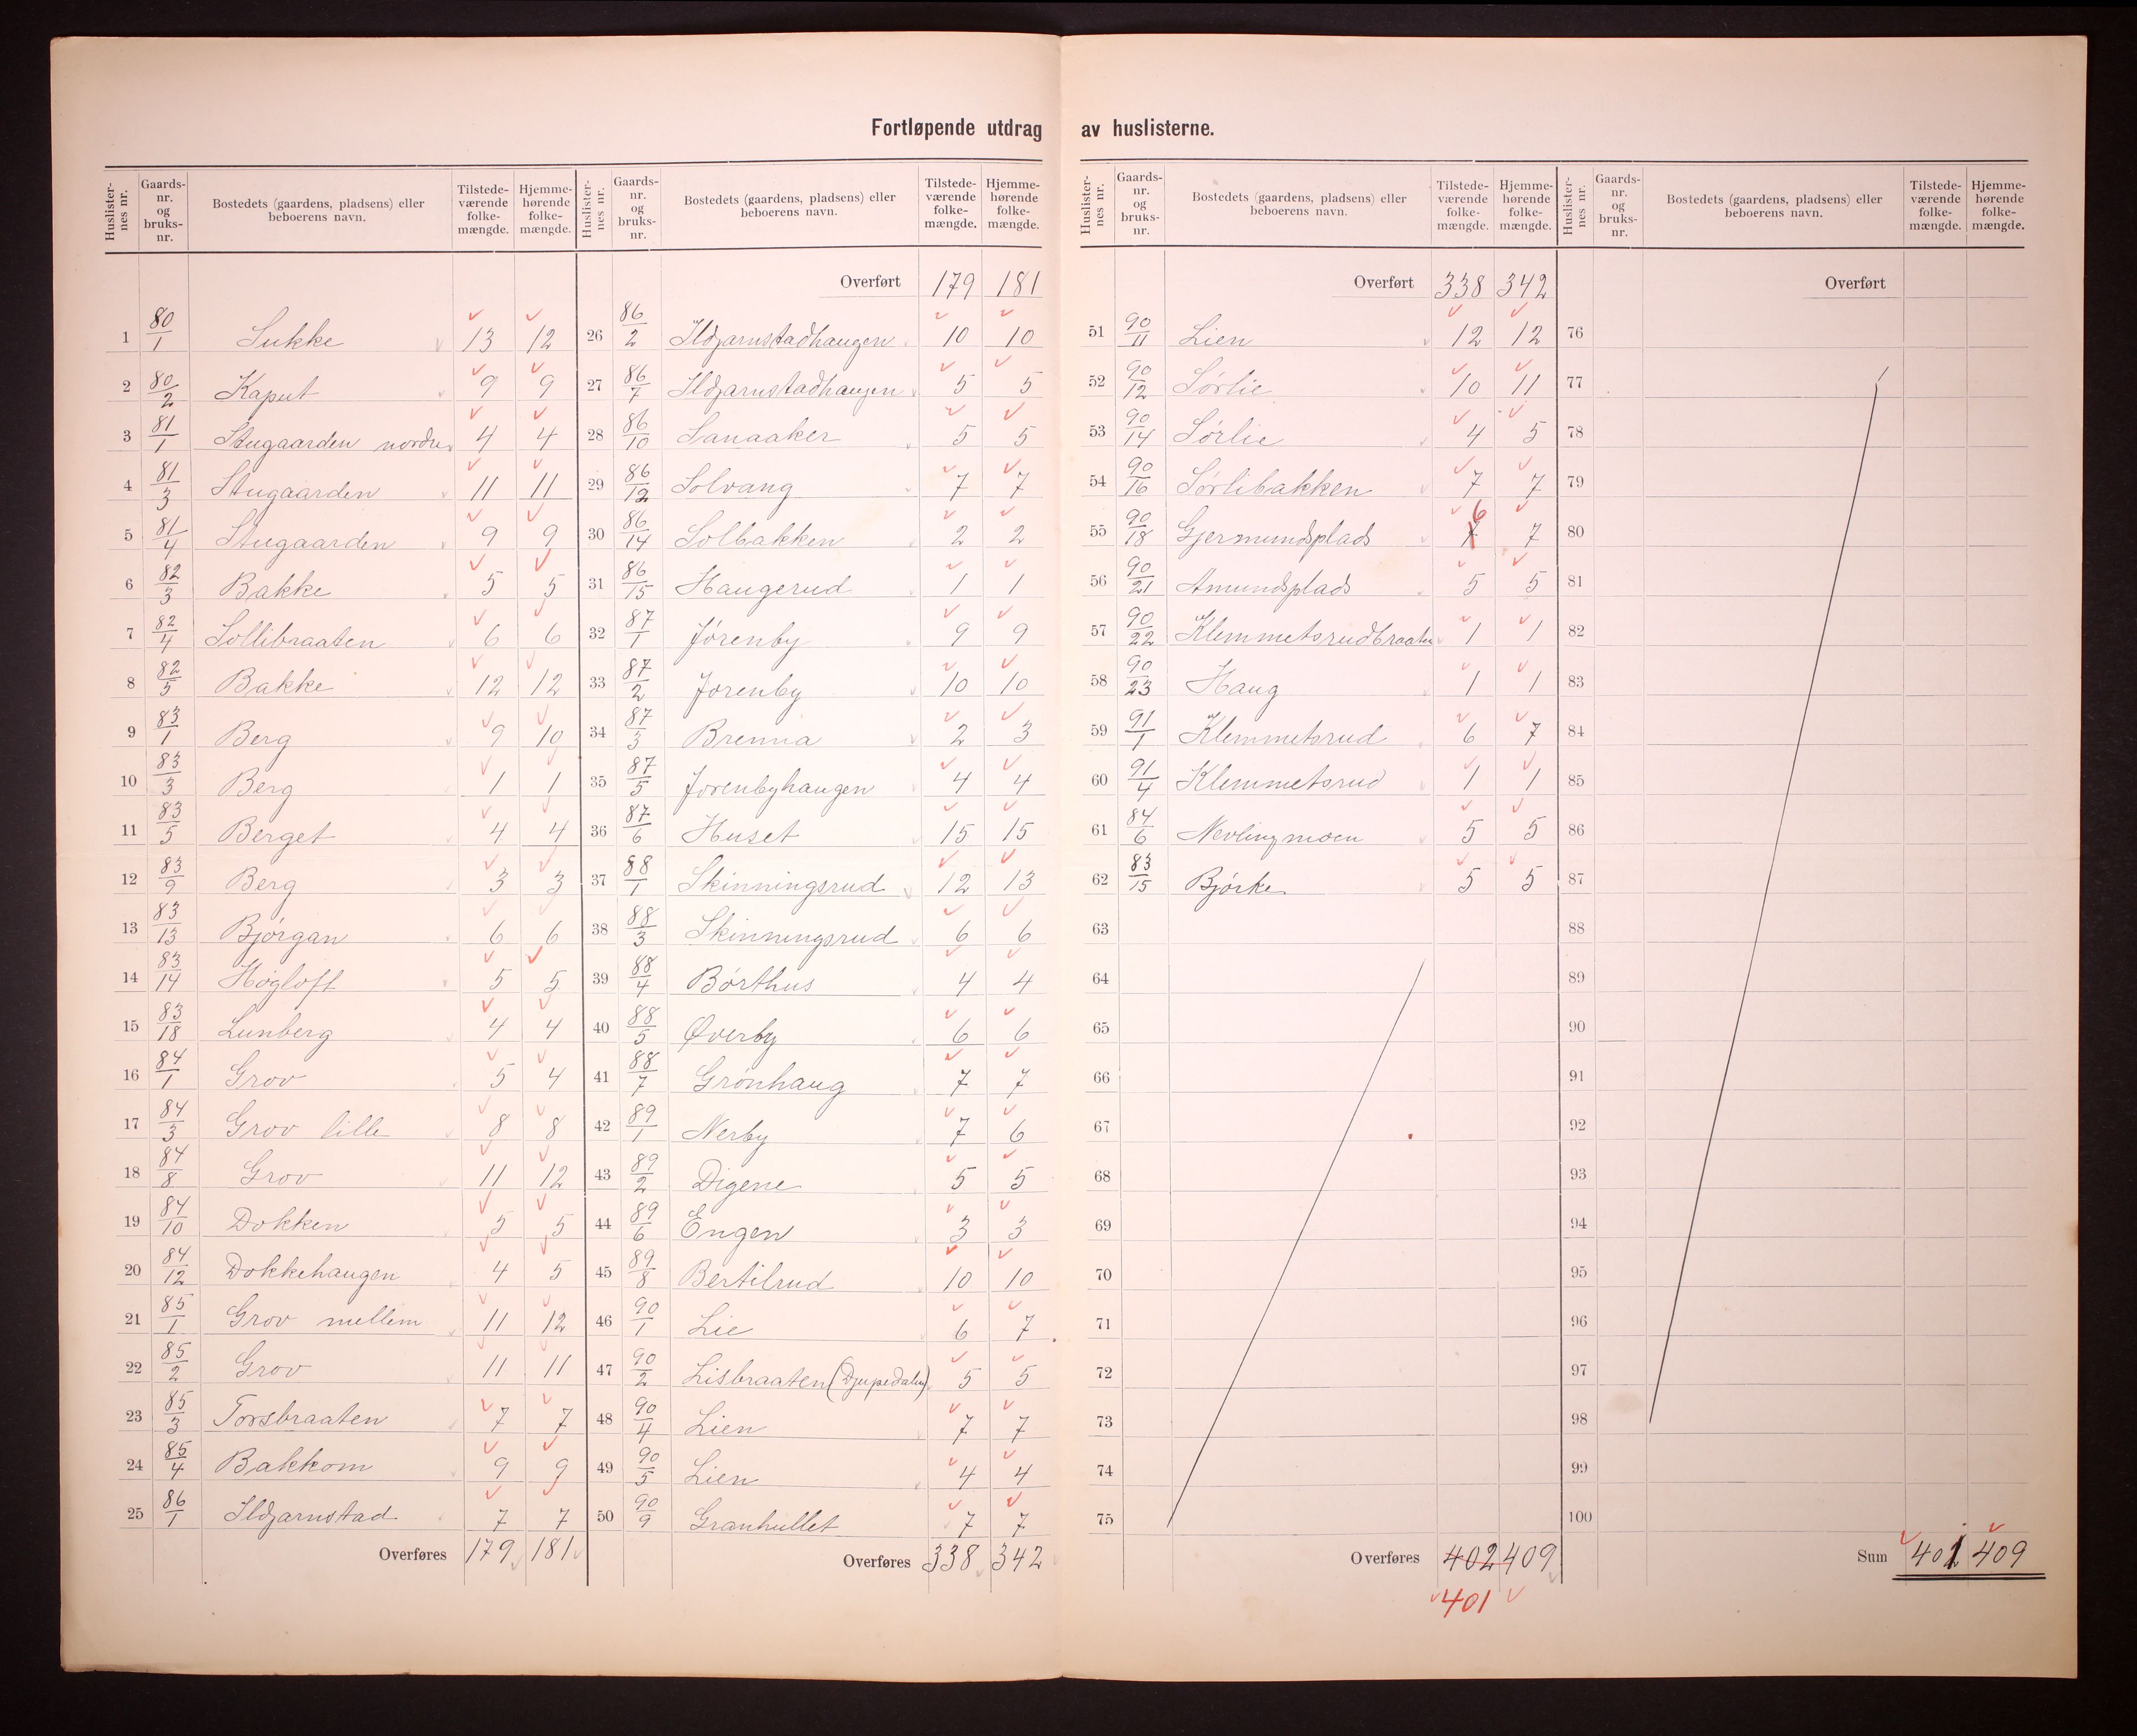 Fortløpende utdrag av huslisterne.
Huslisternes nr. Gaards-nr. og bruks-nr. Bostedets (gaardens, pladsens) eller beboerens navn. Tilstedeværende folkemængde. Hjemmehørende folkemængde.
1 80/1 Sukke 13 12
2 80/2 Kaput 9 9
3 81/1 Stugaarden nordre 4 4
4 81/3 Stugaarden 11 11
5 81/4 Stugaarden 9 9
6 82/3 Bakke 5 5
7 82/4 Sollibraaten 6 6
8 82/5 Bakke 12 12
9 83/1 Berg 9 10
10 83/3 Berg 1 1
11 83/5 Berget 4 4
12 83/9 Berg 3 3
13 83/13 Bjørgan 6 6
14 83/14 Høgloft 5 5
15 83/18 Lunberg 4 4
16 84/1 Grov 5 4
17 84/3 Grov lille 8 8
18 84/8 Grov 11 12
19 84/10 Dokken 5 5
20 84/12 Dokkehaugen 4 5
21 85/1 Grov mellem 11 12
22 85/2 Grov 11 11
23 85/3 Torsbraaten 7 7
24 85/4 Bakkom 9 9
25 86/1 Ildjarnstad 7 7
Overføres 179 181
Huslisternes nr. Gaards-nr. og bruks-nr. Bostedets (gaardens, pladsens) eller beboerens navn. Tilstedeværende folkemængde. Hjemmehørende folkemængde.
Overført 179 181
26 86/2 Ildjarnstadhaugen 10 10
27 86/7 Ildjarnstadhaugen 5 5
28 86/10 Sanaaker 5 5
29 86/12 Solvang 7 7
30 86/14 Solbakken 2 2
31 86/15 Haugerud 1 1
32 87/1 Jørenby 9 9
33 87/2 Jørenby 10 10
34 87/3 Brenna 2 3
35 87/5 Jørenbyhaugen 4 4
36 87/6 Huset 15 15
37 88/1 Skinningsrud 12 13
38 88/3 Skinningsrud 6 6
39 88/4 Børthus 4 4
40 88/5 Øverby 6 6
41 88/7 Grønhaug 7 7
42 89/1 Nerby 7 6
43 89/2 Digene 5 5
44 89/6 Engen 3 3
45 89/8 Bertilrud 10 10
46 90/1 Lie 6 7
47 90/2 Lisbraaten (Djupedalen) 5 5
48 90/4 Lien 7 7
49 90/5 Lien 4 4
50 90/9 Granhullet 7 7
Overføres 338 342
Huslisternes nr. Gaards-nr. og bruks-nr. Bostedets (gaardens, pladsens) eller beboerens navn. Tilstedeværende folkemængde. Hjemmehørende folkemængde.
Overført 338 342
51 90/11 Lien 12 12
52 90/12 Sørlie 10 11
53 90/14 Sørlie 4 5
54 90/16 Sørlibakken 7 7
55 90/18 Gjermundsplads 7 6 7
56 90/21 Amundsplads 5 5
57 90/22 Klemmetsrudbraaten 1 1
58 90/23 Haug 1 1
59 91/1 Klemmetsrud 6 7
60 91/4 Klemmetsrud 1 1
61 84/6 Nevlingmoen 5 5
62 83/15 Bjørke 5 5
63
64
65
66
67
68
69
70
71
72
73
74
75
Overføres 402 409
401
Huslisternes nr. Gaards-nr. og bruks-nr. Bostedets (gaardens, pladsens) eller beboerens navn. Tilstedeværende folkemængde. Hjemmehørende folkemængde.
Overført
76
77
78
79
80
81
82
83
84
85
86
87
88
89
90
91
92
93
94
95
96
97
98
99
100
Sum 401 409